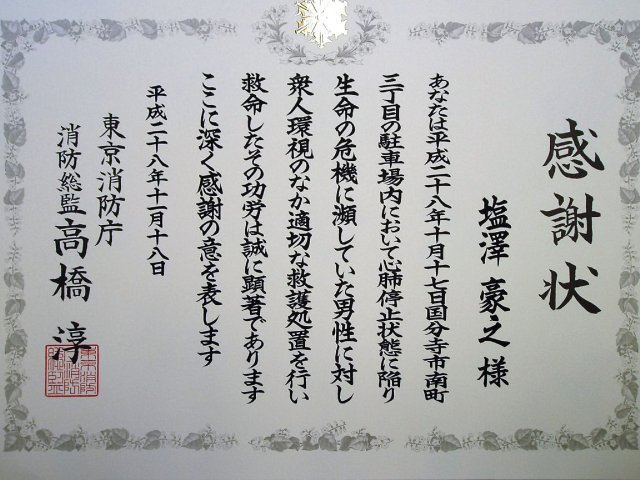 感謝状
塩澤 豪之 様
あなたは平成二十八年十月十七日国分寺市南町
三丁目の駐車場内において心肺停止状態に陥り
生命の危機に瀕していた男性に対し
衆人環視のなか適切な救護処置を行い
救命したその功労は誠に顕著であります
ここに深く感謝の意を表します
平成二十八年十一月十八日
東京消防庁
消防総監 高橋 淳